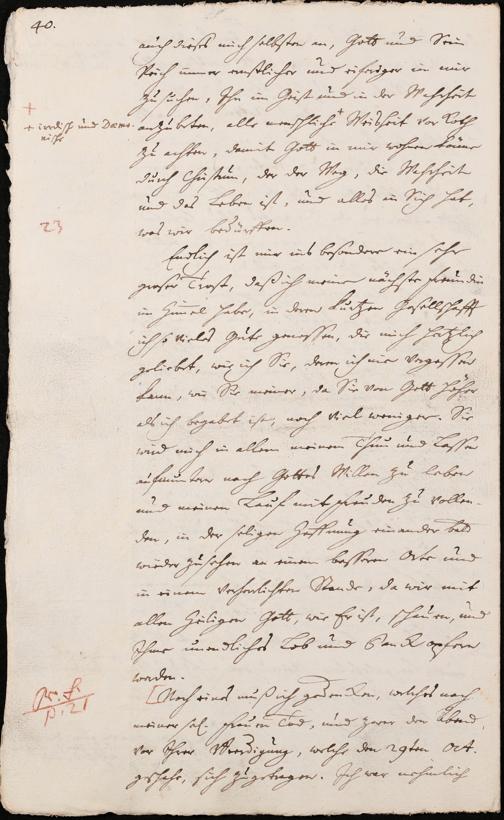 40.
auch dieses mich selbsten an, Gott und Sein
Reich immer ernstlicher und eifriger in mir
zu suchen, Ihn im Geist und in der Wahrheit
+
+ irrdisch und Dæmo-
nische
anzubeten, alle menschliche + Weisheit vor Koth
zu achten, damit Gott in mir wohnen könne
durch Christum, der der Weg, die Wahrheit
und das Leben ist, und alles in Sich hat,
was wir bedürffen.
23
Endlich ist mir ins besondere ein sehr
großer Trost, daß ich meine nächste Freundin
im Himel habe, in deren kurtzen Gesellschafft
ich so vieles Gute genossen, die mich hertzlich
geliebet, wie ich Sie, deren ich nie vergessen
kann, wie Sie meiner, da Sie von Gott höher
als ich begabet ist, noch viel weniger. Sie
wird mich in allem meinem Thun und Lassen
aufmuntern nach Gottes Willen zu leben
und meinen Lauf mit Freuden zu vollen-
den, in der seligen Hoffnung einander bald
wieder zu sehen an einem bessern Orte und
in einem verherrlichten Stande, da wir mit
allen Heiligen Gott, wie Er ist, schauen, und
Ihme unendliches Lob und Danck opfern
werden.
p. 21
[Noch eines muß ich gedencken, welches nach
meiner sel. Frauen Tod, und zwar den Abend
vor Ihrer Beerdigung, welche den 29ten Oct.
geschahe, sich zugetragen. Ich war nehmlich